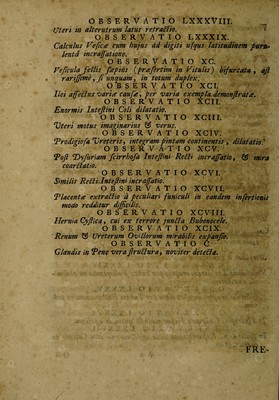 OBSERVATIO LXXXVIII.
Uteri in alterutrum latus retractio.
OBSERVATIO LXXXIX.
Calculus Vesicæ cum hujus ad digiti usque latitudinem puru-
lentâ incrassatione.
OBSERVATIO XC.
Vesicula fellis sæpius (præsertim in Vitulis) bifurcata, ast
rarissimè, si unquam, in totum duplex.
OBSERVATIO XCI.
Ilei affectus variæ causæ, per varia exempla demonstratæ.
OBSERVATIO XCII.
Enormis Intestini Coli dilatatio.
OBSERVATIO XCIII.
Uteri motus imaginarius & verus.
OBSERVATIO XCIV.
Prodigiosa Ureteris, integram pintam continentis, dilatatio.
OBSERVATIO XCV.
Post Dysuriam scirrhosa Intestini Recti incrassatio, & mira
coarctatio.
OBSERVATIO XCVI.
Similis Recti Intestini incrassatio.
OBSERVATIO XCVII.
Placentæ extractio à peculiari funiculi in eandem insertionis
modo redditur difficilis.
OBSERVATIO XCVIII.
Hernia Cystica, cui ex terrore juncta Bubonocele.
OBSERVATIO XCIX.
Renum & Ureterum Ovillorum mirabilis expansio.
OBSERVATIO C.
Glandis in Pene vera structura, noviter detecta.
FRE-